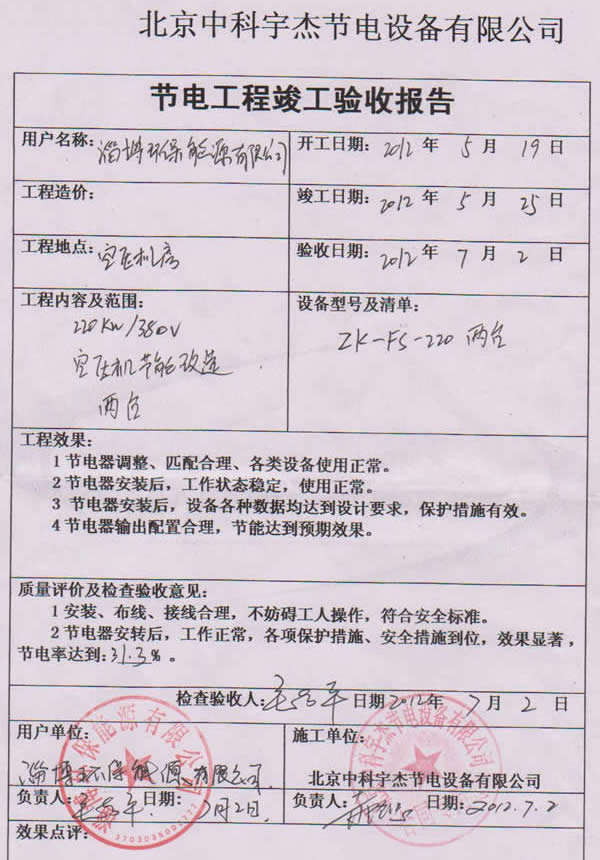 北京中科宇杰节电设备有限公司
节电工程竣工验收报告
用户名称：淄博环保能源有限公司 开工日期：2012 年 5 月 19 日
工程造价： 竣工日期：2012 年 5 月 25 日
工程地点：空压机房 验收日期：2012 年 7 月 2 日
工程内容及范围： 设备型号及清单：
220KW/380V ZK-FS-220 两台
空压机节能改造
两台
工程效果：
1 节电器调整、匹配合理、各类设备使用正常。
2 节电器安装后，工作状态稳定，使用正常。
3 节电器安装后，设备各种数据均达到设计要求，保护措施有效。
4 节电器输出配置合理，节能达到预期效果。
质量评价及检查验收意见：
1 安装、布线、接线合理，不妨碍工人操作，符合安全标准。
2 节电器安转后，工作正常，各项保护措施、安全措施到位，效果显著，
节电率达到：31.3%。
检查验收人： 日期 2012年 7 月 2 日
用户单位： 施工单位：
淄博环保能源有限公司 北京中科宇杰节电设备有限公司
负责人： 日期： 7月2日 负责人： 日期：2012.7.2
效果点评：